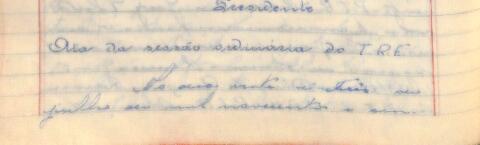 Presidente
Ata da sessão ordinária do T.R.E.
Aos vinte e três de
julho de mil novecentos e cin-